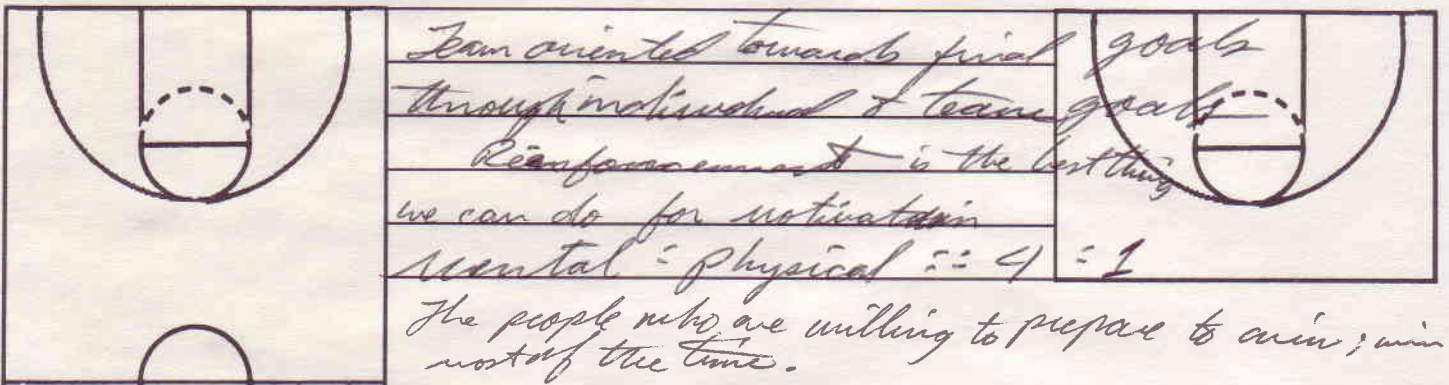 Team oriented towards final goals
through individual & team goals
Reinforcement is the best thing
we can do for motivation
Mental : Physical :: 4 : 1
The people who are willing to prepare to win; win
most of the time.